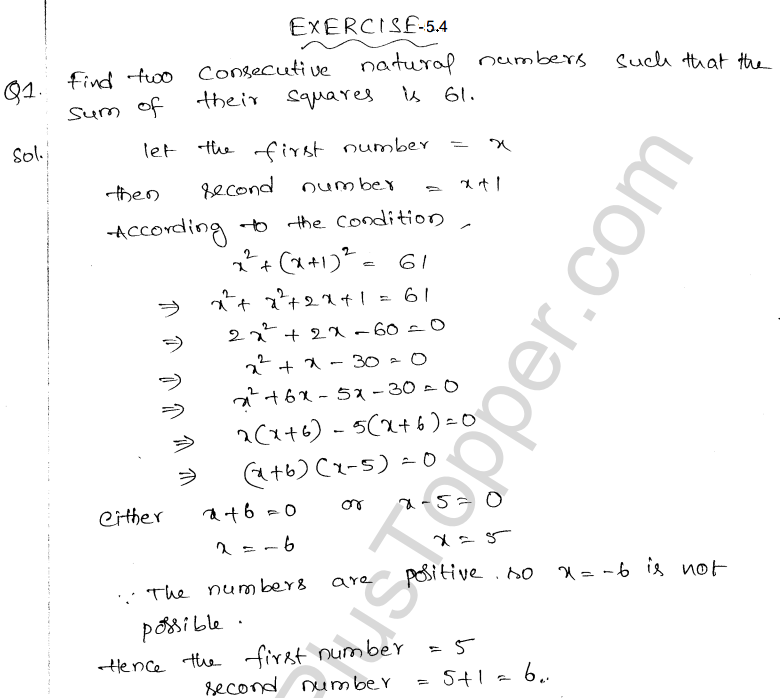 EXERCISE-5.4
Q1. Find two consecutive natural numbers such that the
sum of their squares is 61.
Sol. let the first number = x
then second number = x+1
According to the condition,
x²+(x+1)² = 61
⇒ x²+ x²+2x+1 = 61
⇒ 2x² + 2x -60 = 0
⇒ x² + x - 30 = 0
⇒ x²+6x - 5x - 30 = 0
⇒ x(x+6) - 5(x+6) = 0
⇒ (x+6) (x-5) = 0
either x+6 = 0 or x-5 = 0
x = -6 x = 5
∵ The numbers are positive. so x = -6 is not
possible.
Hence the first number = 5
second number = 5+1 = 6.
PlusTopper.com